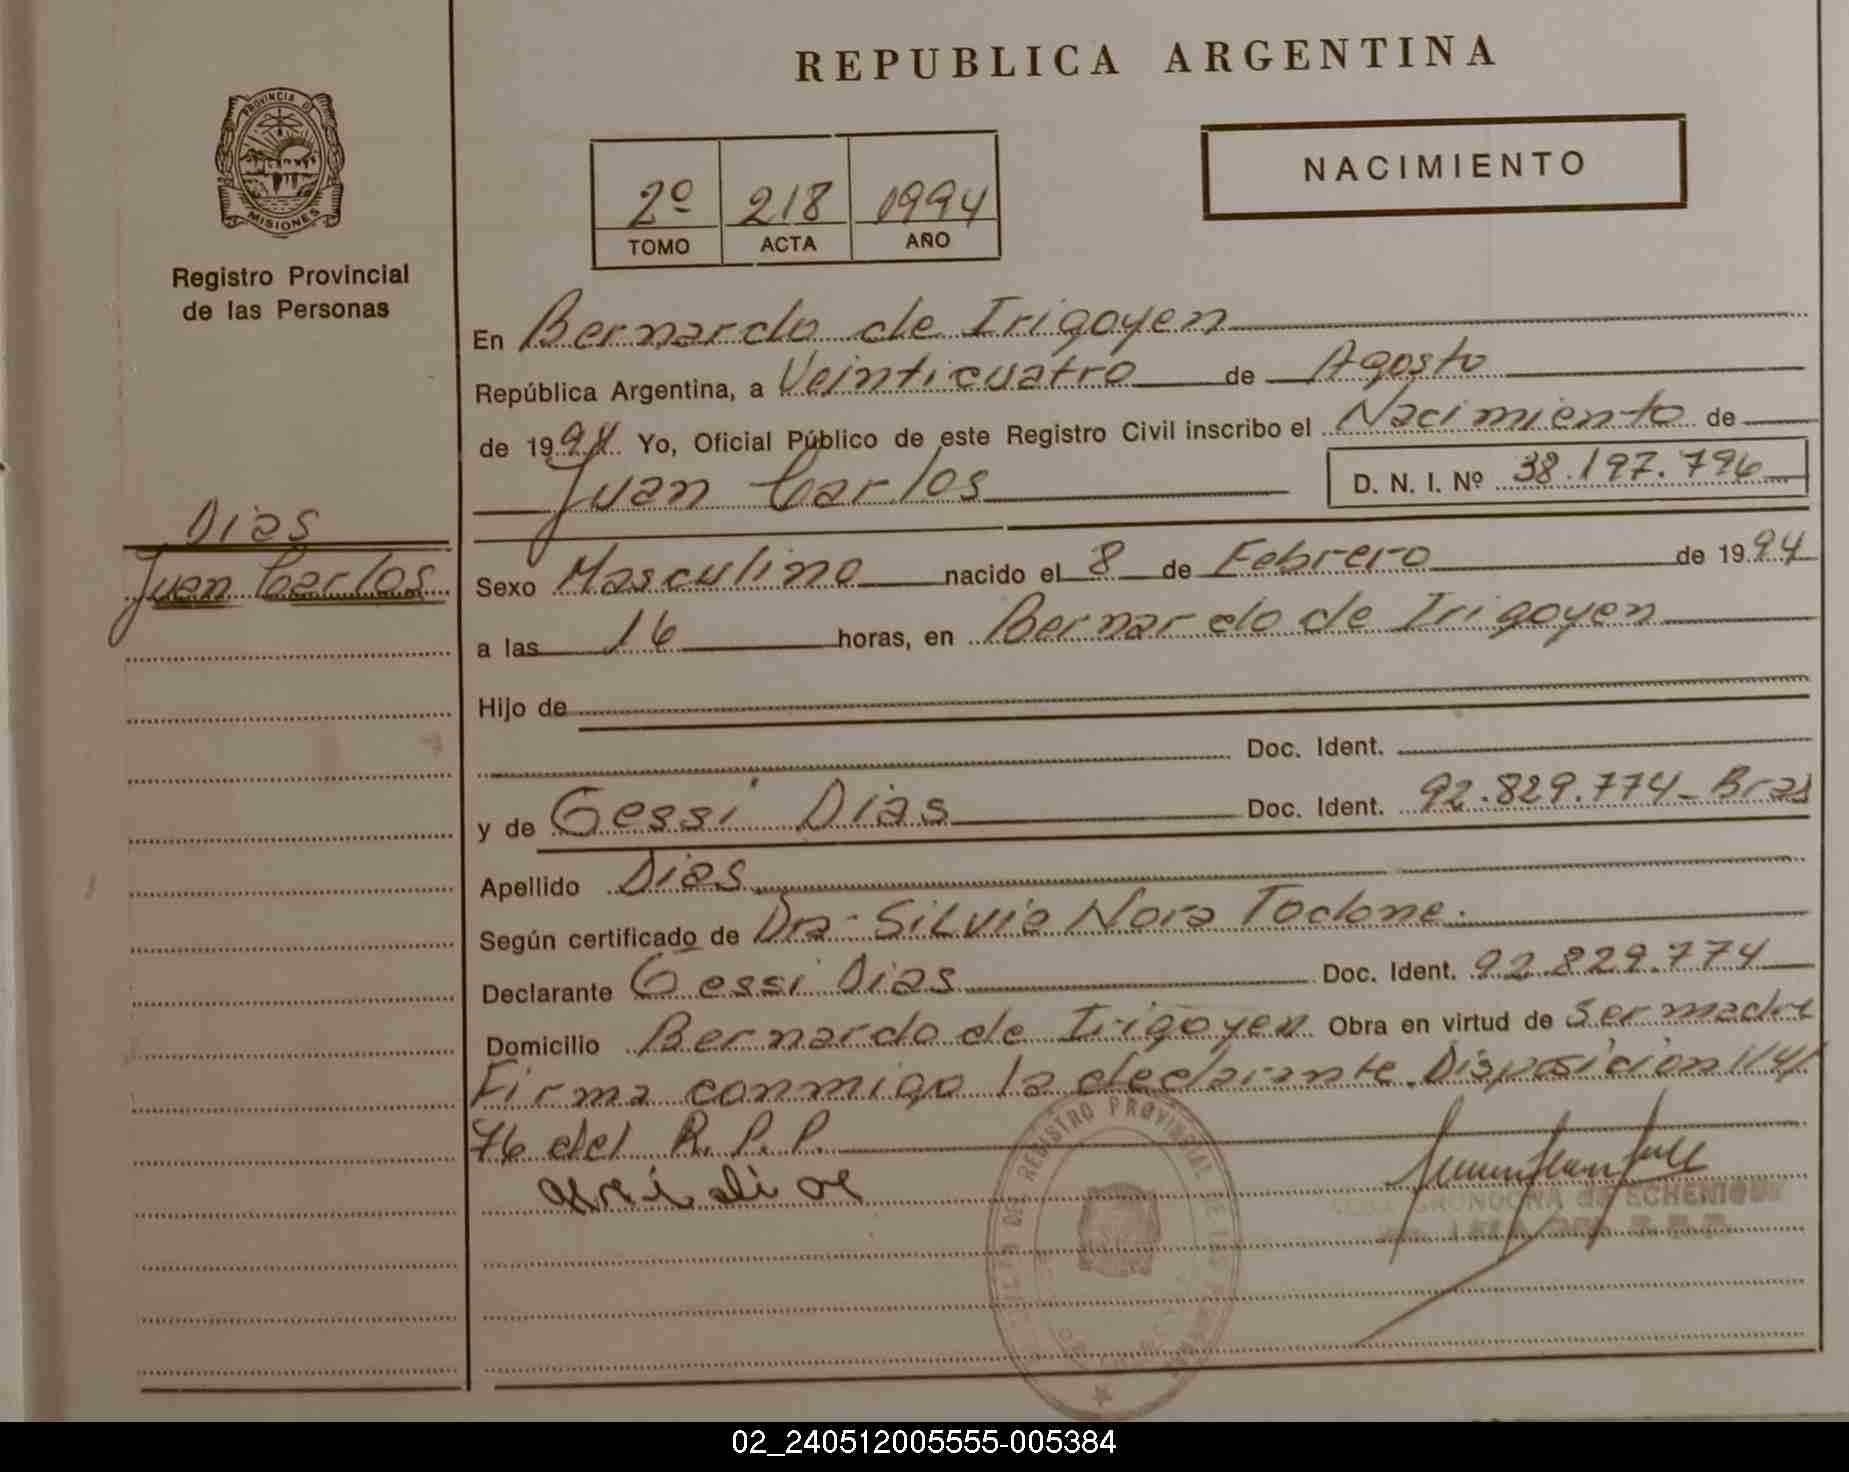 REPUBLICA ARGENTINA
PROVINCIA DE
MISIONES
Registro Provincial
de las Personas
2º 218 1994
TOMO ACTA AÑO
NACIMIENTO
En Bernardo de Irigoyen
República Argentina, a Veinticuatro de Agosto
de 1994 Yo, Oficial Público de este Registro Civil inscribo el Nacimiento de
Juan Carlos D. N. I. Nº 38.197.796
Dias
Juan Carlos
Sexo Masculino nacido el 8 de Febrero de 1994
a las 16 horas, en Bernardo de Irigoyen
Hijo de
Doc. Ident.
y de Gessi Dias Doc. Ident. 92.829.774-Bras
Apellido Dias
Según certificado de Dra-Silvia Nora Todone.
Declarante Gessi Dias Doc. Ident. 92.829.774
Domicilio Bernardo de Irigoyen Obra en virtud de ser madre
Firma conmigo la declarante. Disposicion 114/
76 del R.P.P.
REGISTRO PROVINCIAL DE LAS
de ECHENIQUE
02_240512005555-005384